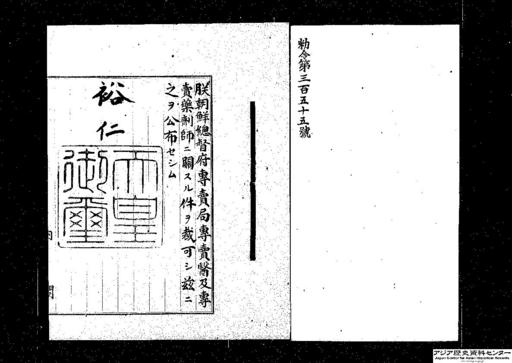 勅令第三百五十五號
朕朝鮮總督府專賣局專賣醫及專
賣藥劑師ニ關スル件ヲ裁可シ茲ニ
之ヲ公布セシム
裕仁
天皇御璽
内
閣
アジア歴史資料センター
Japan Center for Asian Historical Records